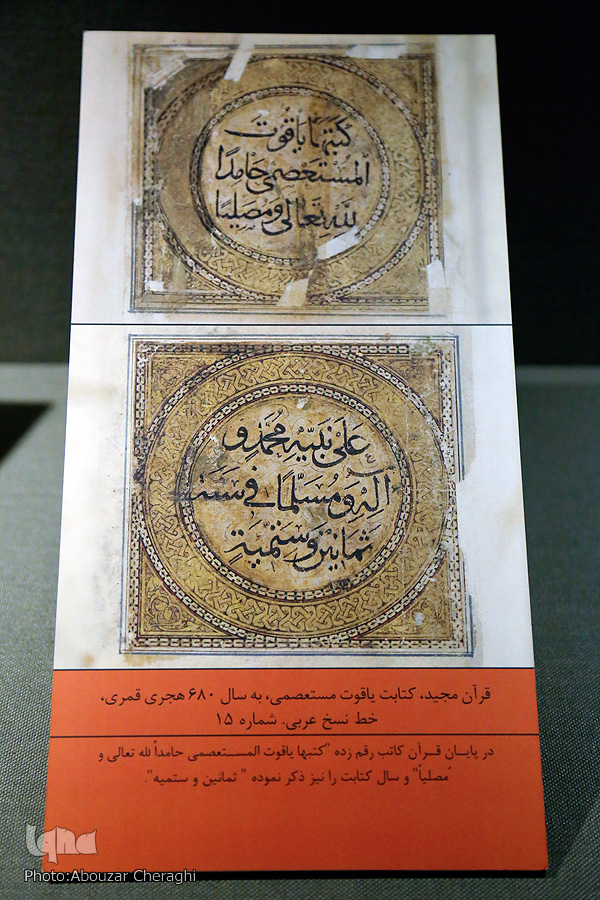 كتبها ياقوت
المستعصمي حامدًا
لله تعالى ومصليا
على نبيه محمد و
آله ومسلما في سنة
ثمانين وستمية
قرآن مجید، کتابت یاقوت مستعصمی، به سال ۶۸۰ هجری قمری،
خط نسخ عربی. شماره ۱۵
در پایـان قـرآن کاتب رقم زده "کتبها یاقوت المسـتعصمی حامداً لله تعالی و
مصلیاً" و سال کتابت را نیز ذکر نموده " ثمانین و ستمیه".
iqna
Photo:Abouzar Cheraghi